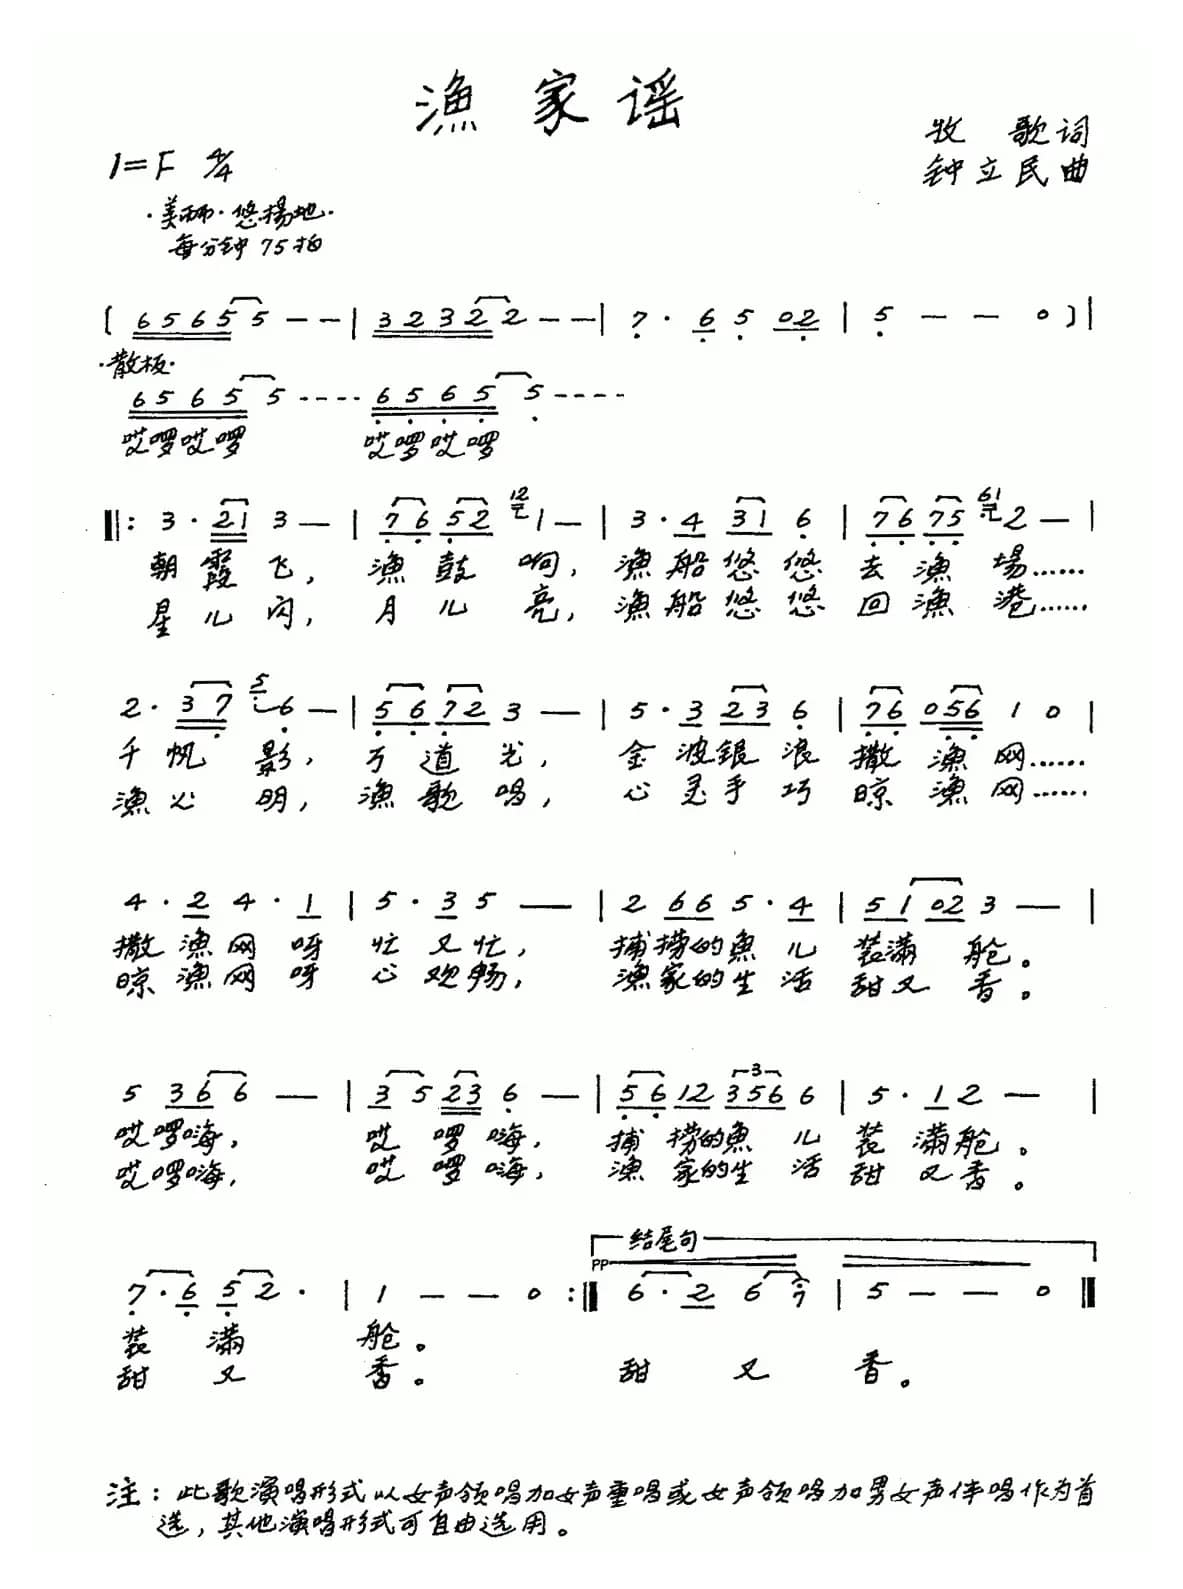 渔家谣
牧 歌词
1=F 4/4
钟立民曲
·美丽·悠揚地·
每分钟75拍
( 6 5 6 5 5 - - | 3 2 3 2 2 - - | 7 · 6 5 0 2 | 5 - - 0 ) |
·散板·
6 5 6 5 5 - - - - 6 5 6 5 5 - - - -
哎啰哎啰 哎啰哎啰
‖: 3 · 2 1 3 - | 7 6 5 2 12 1 - | 3 · 4 3 1 6 | 7 6 7 5 61 2 - |
朝霞飞, 渔鼓响, 渔船悠悠去渔場……
星儿闪, 月儿亮, 渔船悠悠回渔港……
2 · 3 7 5 6 - | 5 6 7 2 3 - | 5 · 3 2 3 6 | 7 6 0 5 6 1 0 |
千帆影, 万道光, 金波銀浪撒渔网……
渔火明, 渔歌唱, 心灵手巧晾渔网……
4 · 2 4 · 1 | 5 · 3 5 - | 2 6 6 5 · 4 | 5 1 0 2 3 - |
撒渔网呀忙又忙, 捕捞的魚儿装满舱。
晾渔网呀心欢畅, 渔家的生活甜又香。
5 3 6 6 - | 3 5 2 3 6 - | 5 6 1 2 3 5 6 6 | 5 · 1 2 - |
3
哎啰嗨, 哎啰嗨, 捕捞的魚儿装满舱。
哎啰嗨, 哎啰嗨, 渔家的生活甜又香。
结尾句
PP
7 · 6 5 2 · | 1 - - 0 :‖ 6 · 2 6 7 | 5 - - 0 ‖
装满舱。
甜又香。 甜又香。
注:此歌演唱形式以女声领唱加女声重唱或女声领唱加男女声伴唱作为首
选,其他演唱形式可自由选用。